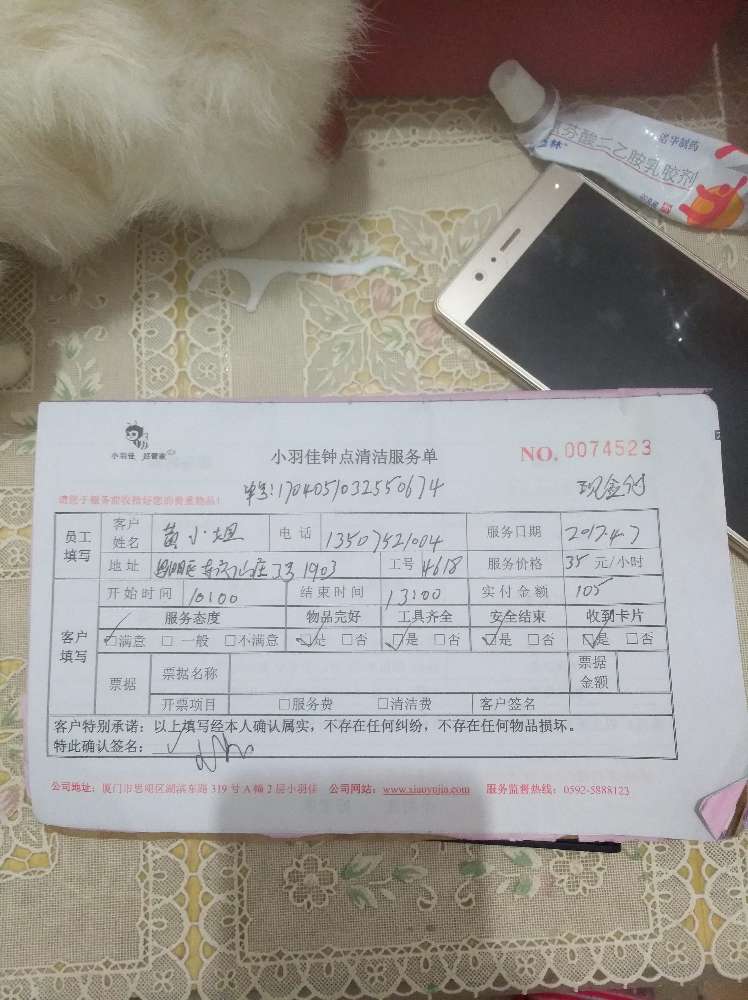 诺华制药
双氯芬酸二乙胺乳胶剂
小羽佳 好管家
小羽佳钟点清洁服务单
NO. 0074523
单号:1704051032550674
现金付
请您于服务前收拾好您的贵重物品!
员工填写 客户姓名 黄小姐 电话 13507521004 服务日期 2017.4.7
地址 3号1903 工号 4618 服务价格 35 元/小时
客户填写 开始时间 10:00 结束时间 13:00 实付金额 105
服务态度 物品完好 工具齐全 安全结束 收到卡片
☑满意 □一般 □不满意 ☑是 □否 ☑是 □否 ☑是 □否 ☑是 □否
票据 票据名称 票据金额
开票项目 □服务费 □清洁费 客户签名
客户特别承诺:以上填写经本人确认属实,不存在任何纠纷,不存在任何物品损坏。
特此确认签名:
公司地址:厦门市思明区湖滨东路 319 号 A 幢 2 层小羽佳 公司网站:www.xiaoyujia.com 服务监督热线:0592-5888123